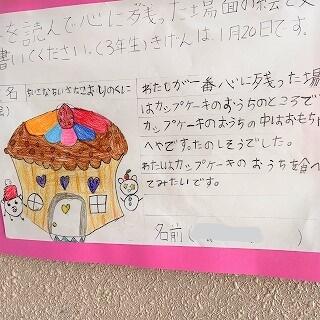 を読んで心に残った場面の絵と文
書いてください。(3年生)きげんは、1月20日です。
名
ちいさなちいさなおかしのくに
わたしが一番心に残った場
はカップケーキのおうちのところで
カップケーキのおうちの中はおもち
へやです。たのしそうでした。
わたしはカップケーキのおうちを食べ
てみたいです。
名前(